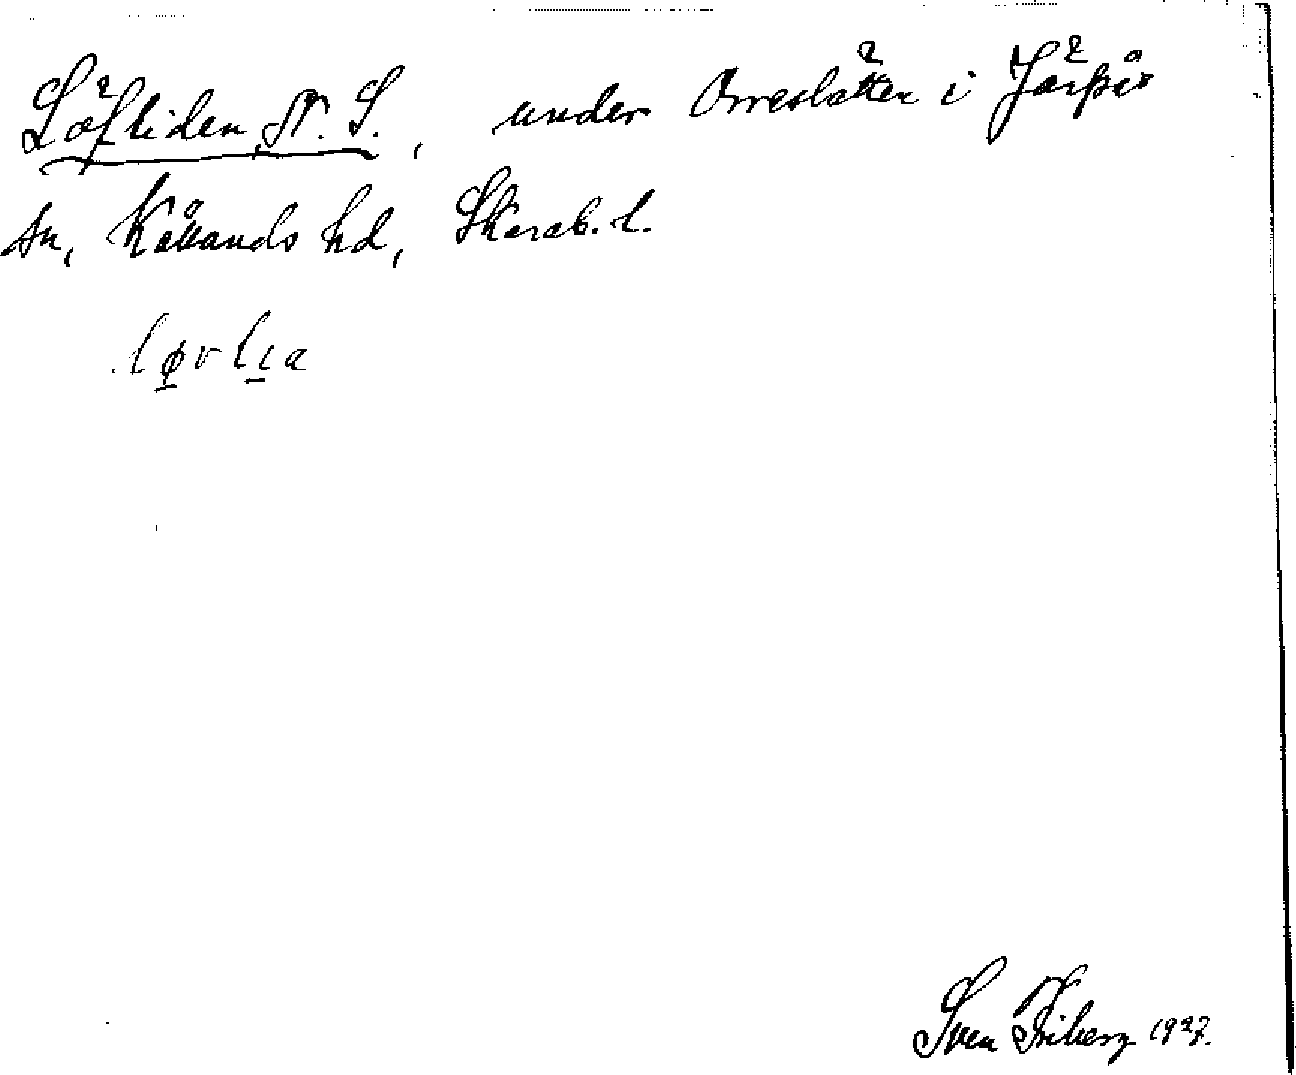 Löfliden, N. S., under Orreslätten i Järpås
sn, Kållands hd, Skarab. l.
løvlıa
Sven Friberg 1927.